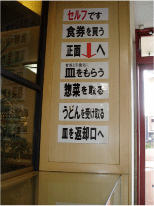 セルフです
食券を買う
正面↓へ
皿をもらう
惣菜を取る
うどんを受け取る
皿を返却口へ